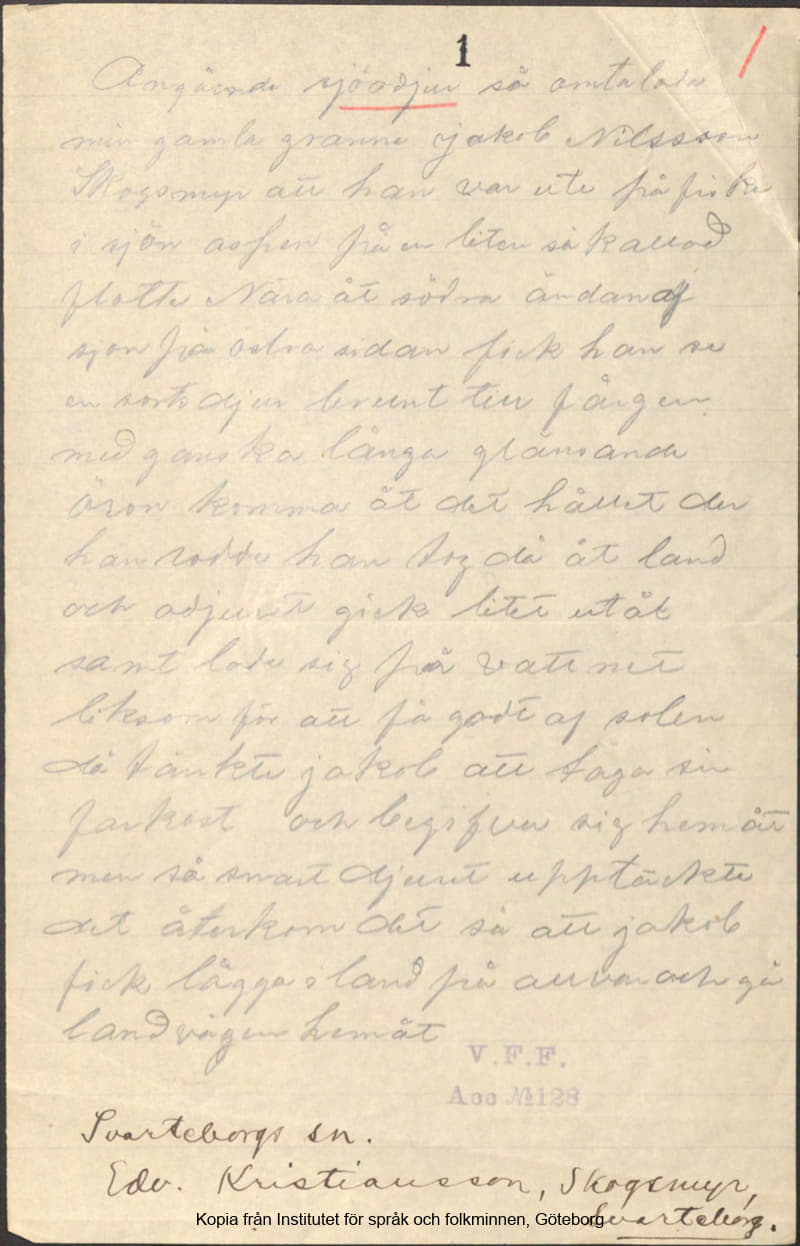 1
Angående sjöodjur så omtalade
min gamla granne jakob Nilssson
Skogsmyr att han var ute på fiske
i sjön aspen på en liten så kallad
flotte Nära åt södra ändan af
sjön på östra sidan fick han se
en sorts djur brunt till färgen
med ganska långa glänsande
öron komma åt det hållet der
han rodde han tog då åt land
och odjuret gick litet utåt
samt lade sig på vattnet
liksom för att få godt af solen
då tänkte jakob att taga sin
farkost och begifva sig hemåt
men så snart djuret upptäckte
det återkom det så att jakob
fick lägga i land på allvar och gå
landvägen hemåt
V.F.F.
Acc № 128
Svarteborgs sn.
Edv. Kristiansson, Skogsmyr,
Svarteborg.
Kopia från Institutet för språk och folkminnen, Göteborg